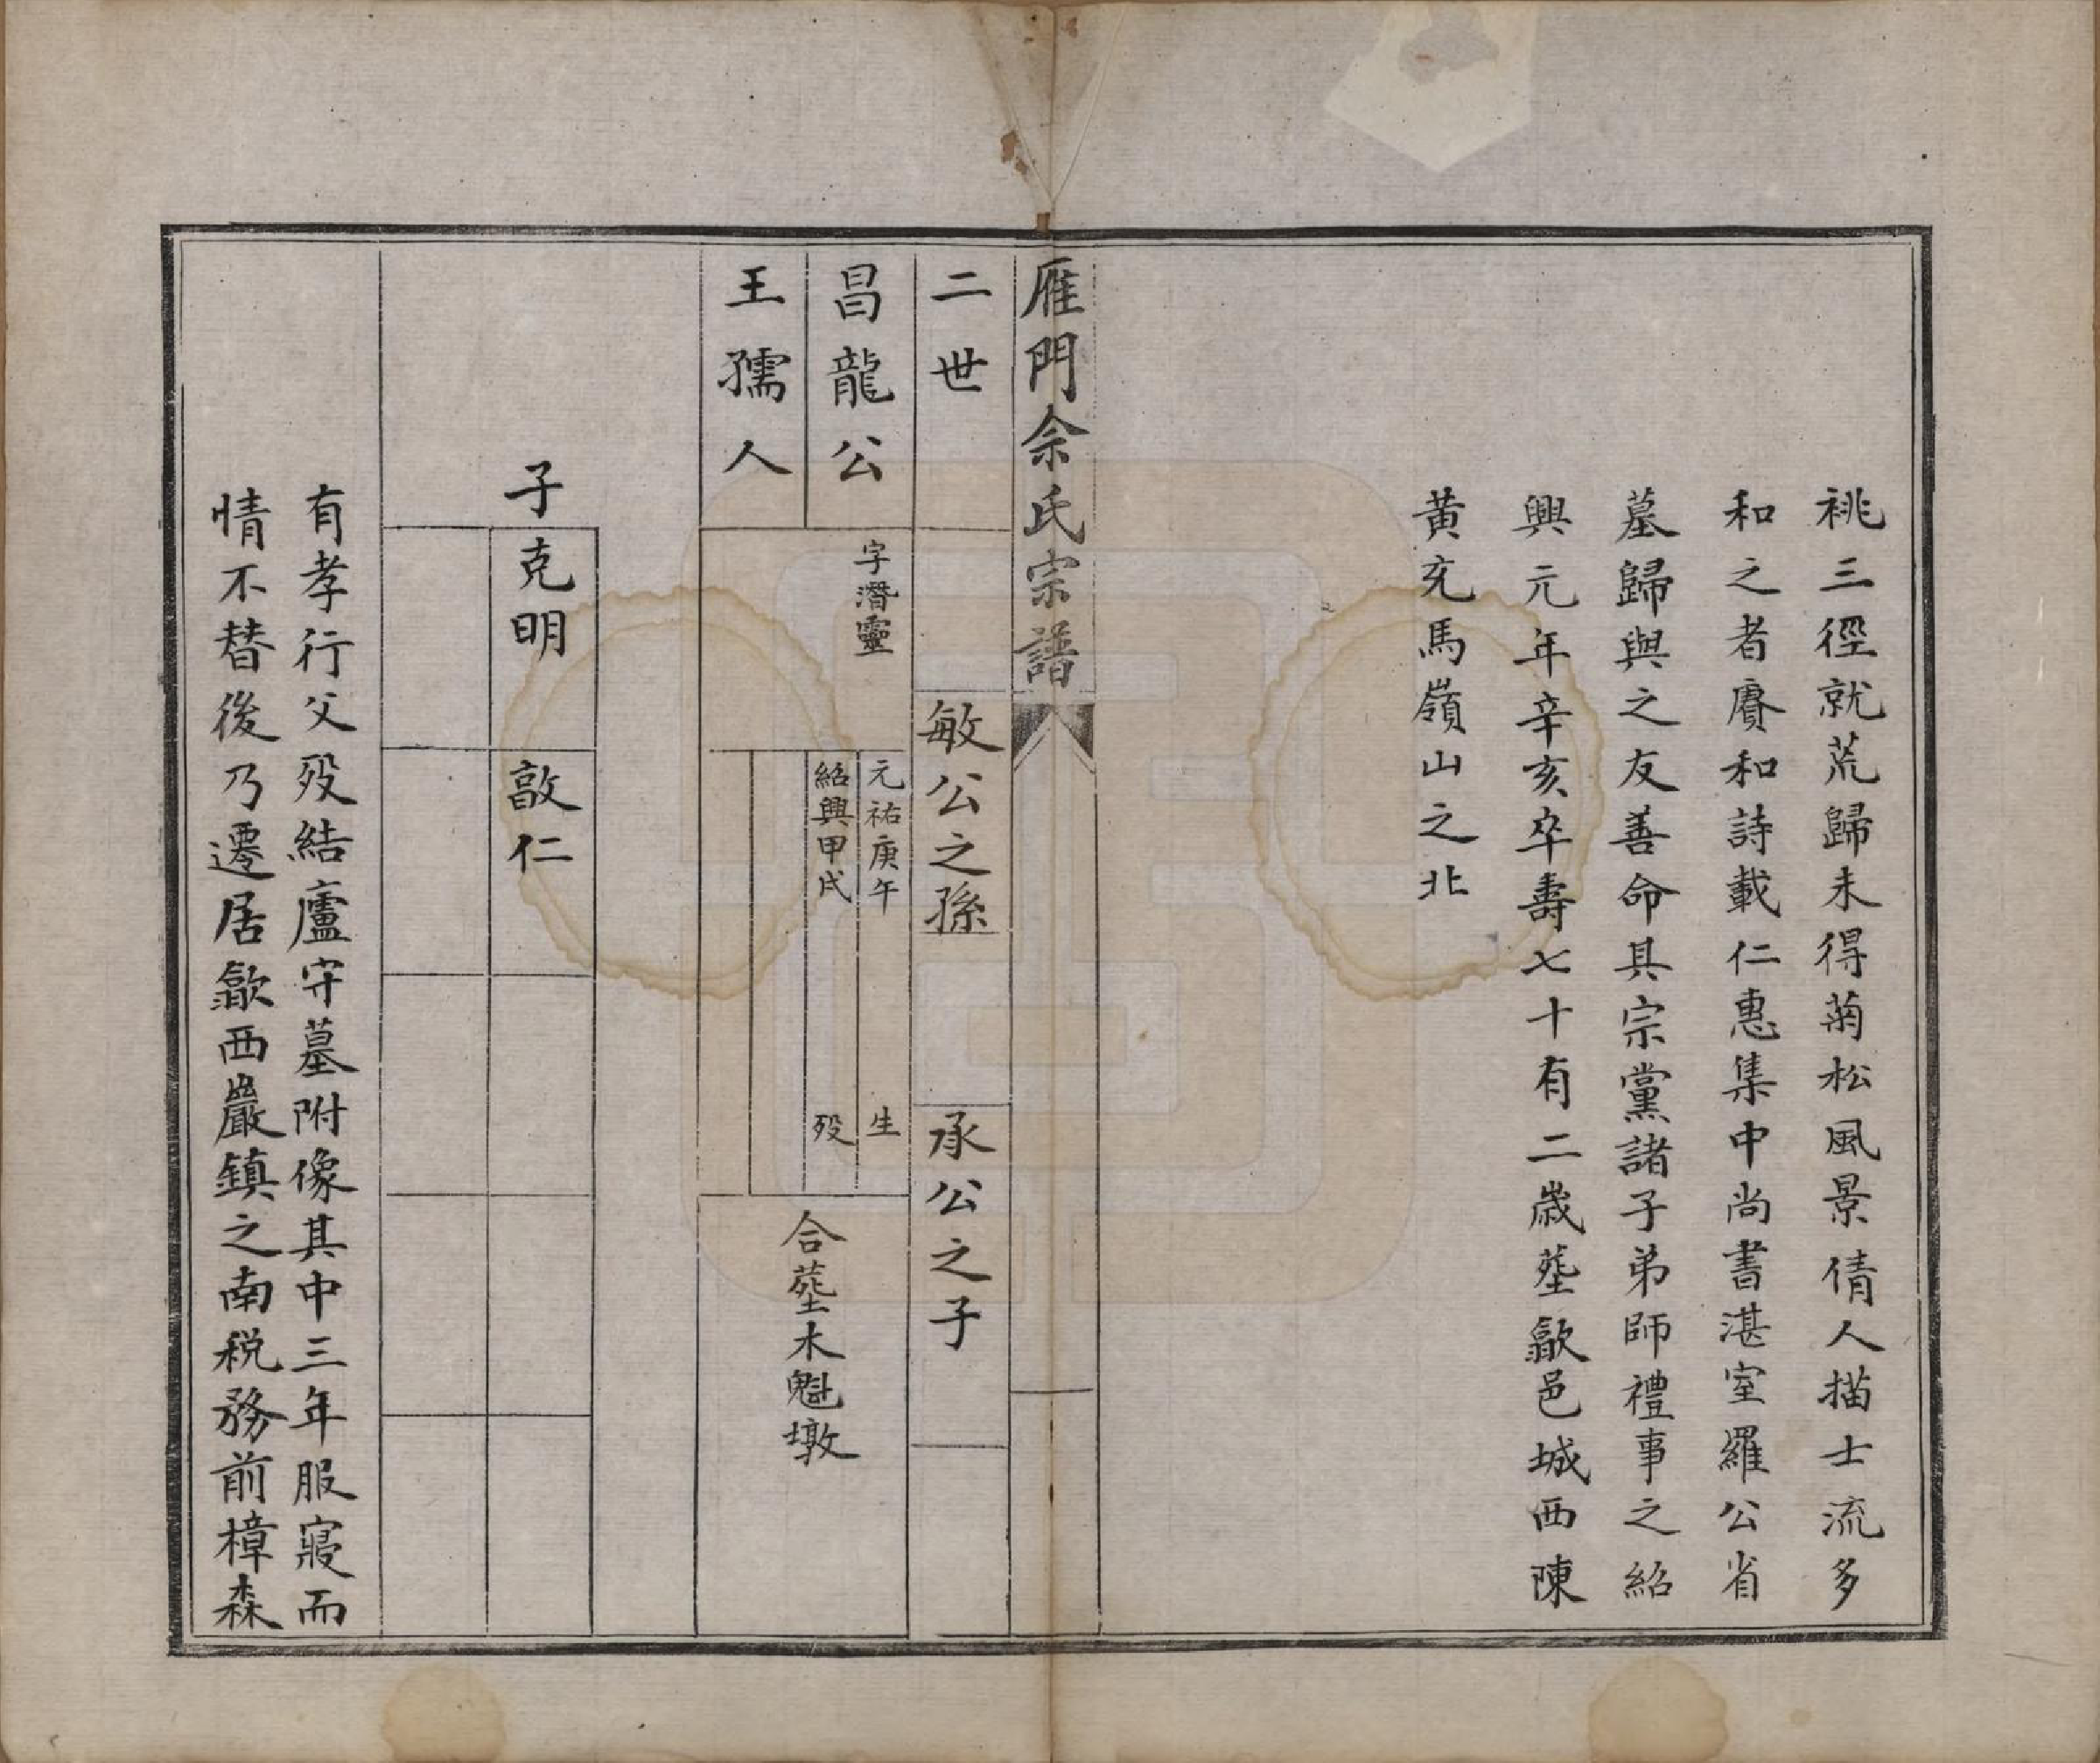 祧三徑就荒歸未得菊松風景倩人描士流多
和之者賡和詩載仁惠集中尚書湛室羅公省
墓歸與之友善命具宗黨諸子弟師禮事之紹
興元年辛亥卒壽七十有二歲塟歙邑城西陳
黃充馬嶺山之北
雁門佘氏宗譜
二世
敏公之孫
承公之子
昌龍公
王孺人
字潛靈
元祐庚午 生
紹興甲戌 歿
合塟木魁墩
子
克明
敦仁
有孝行父歿結廬守墓附像其中三年服寢而
情不替後乃遷居歙西巖鎮之南税務前樟森